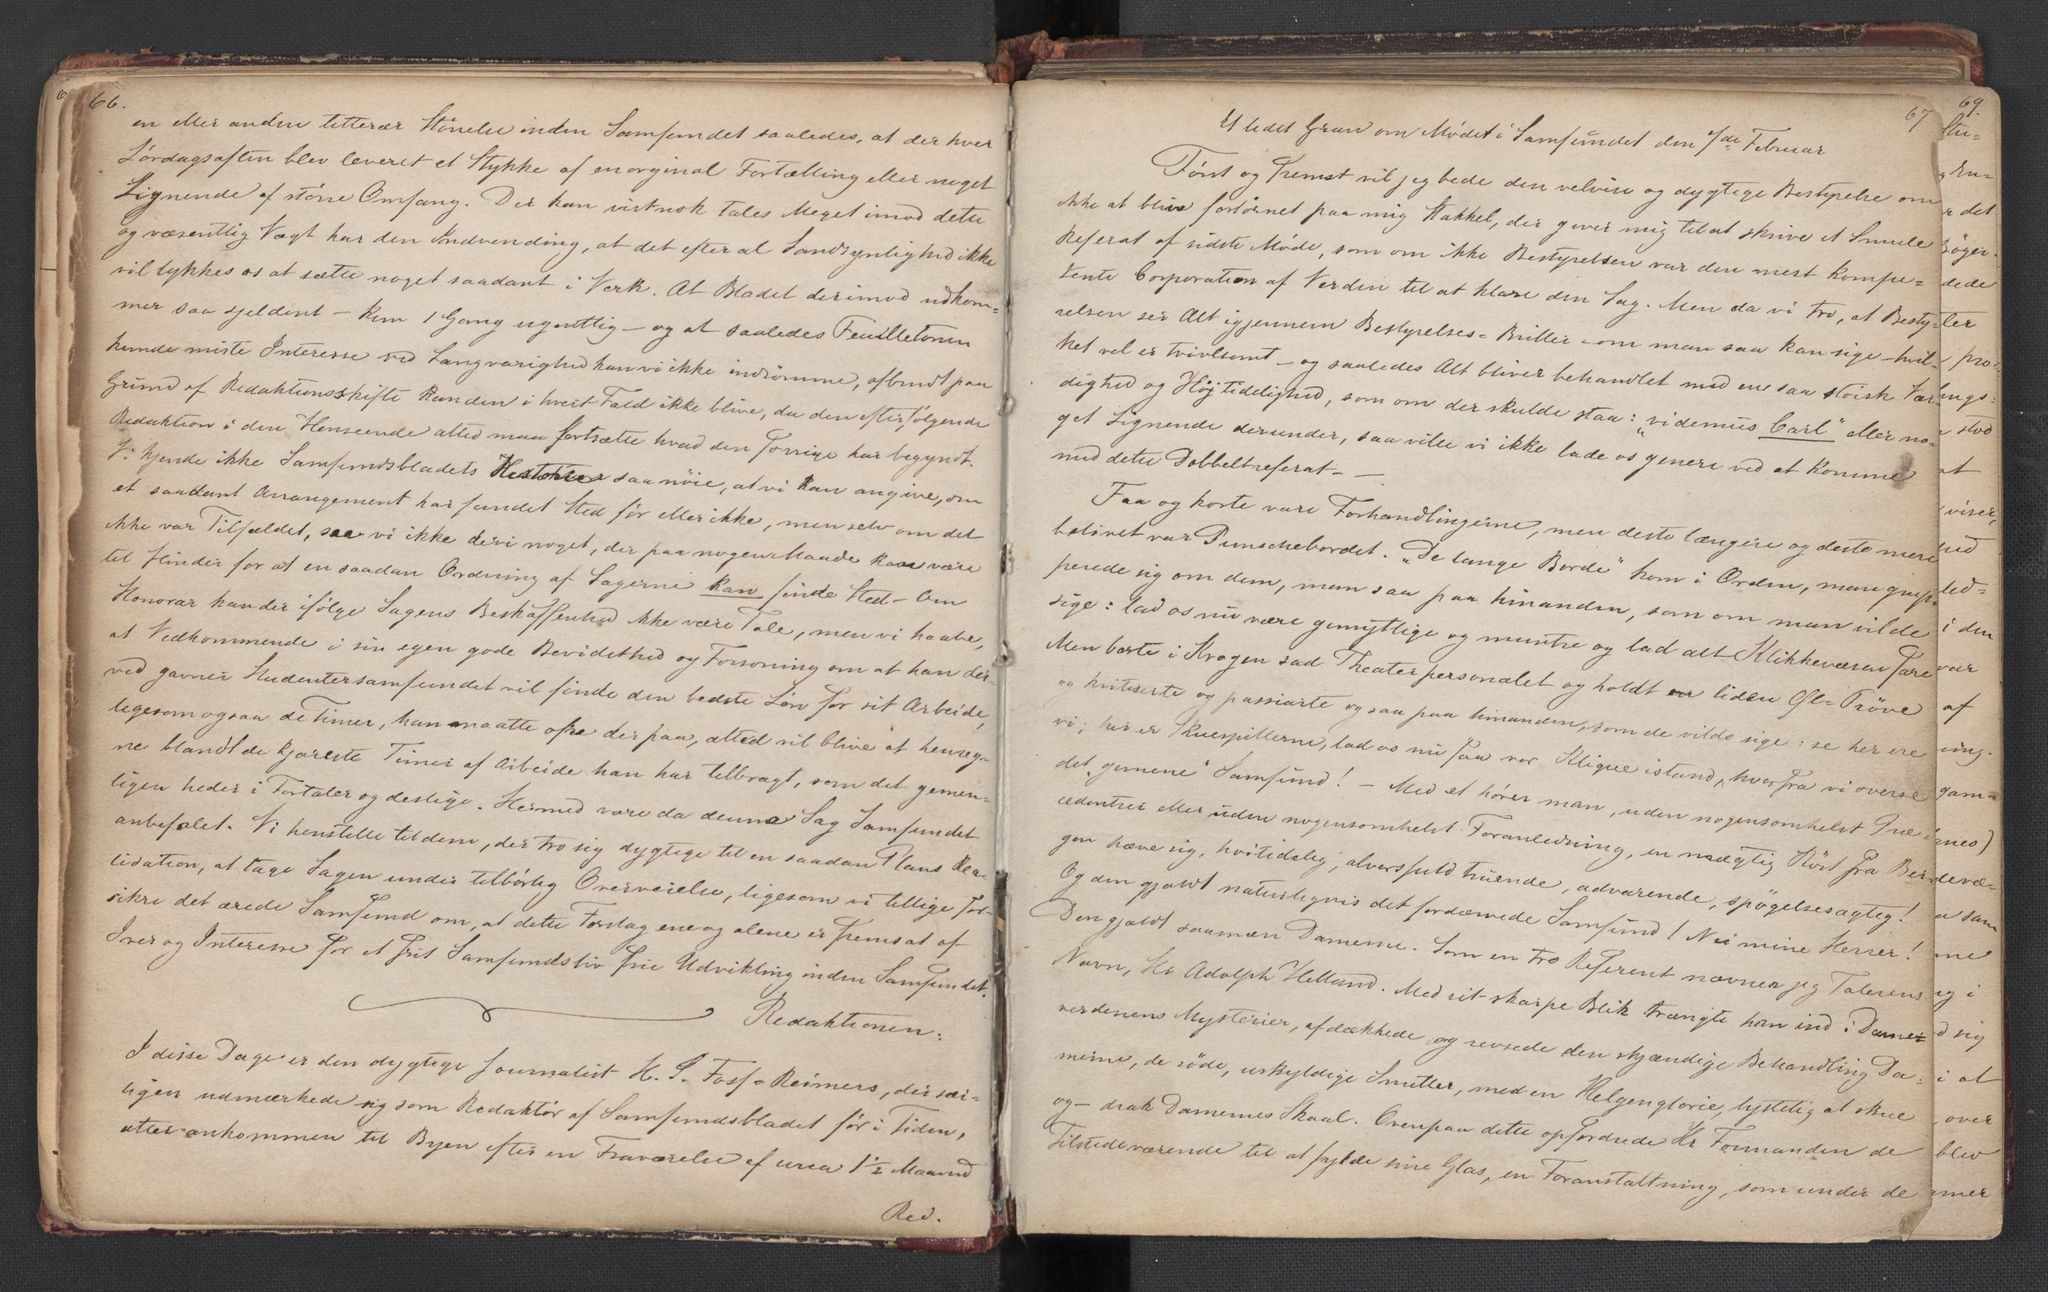 66.
en eller anden litterær Størrelse inden Samfundet saaledes, at der hver
Lørdagsaften blev leveret et Stykke af en orginal Fortælling eller noget
Lignende af større Omfang. Der kan vistnok tales Meget imod dette
og væsentlig Vægt har den Indvending, at det efter al Sandsynlighed ikke
vil lykkes os at sætte noget saadant i Verk. At Bladet derimod udkom-
mer saa sjeldent – kun 1 Gang ugentlig – og at saaledes Feuilletonen
kunde miste Interesse ved Langvarighed kan vi ikke indrømme, afbrudt paa
Grund af Redaktionsskifte kan den i hvert Fald ikke blive, da den efterfølgende
Redaktion i den Henseende altid maa fortsætte hvad den Forrige har begyndt.
Vi kjende ikke Samfundsbladets Historie saa nøie, at vi kan angive, om
et saadant Arrangement har fundet Sted før eller ikke, men selv om det
ikke var Tilfældet, saa vi ikke deri noget, der paa nogen Maade kan være
til Hinder for at en saadan Ordning af Sagerne kan finde Sted – Om
Honorar kan der ifølge Sagens Beskaffenhed ikke være Tale, men vi haabe,
at Vedkommende i sin egen gode Bevidsthed og Forvisning om at han der-
ved gavner Studentersamfundet vil finde den bedste Løn for sit Arbeide,
ligesom ogsaa de Timer, han maatte ofre der paa, altid vil blive at henreg-
ne blandt de kjæreste Timer af Arbeide han har tilbragt, som det gemen-
ligen heder i Fortaler og deslige. Hermed være da denne Sag Samfundet
anbefalet. Vi henstille til dem, der tro sig dygtige til en saadan Plans Rea-
lisation, at tage Sagen under tilbørlig Overveielse, ligesom vi tillige for-
sikre det ærede Samfund om, at dette Forslag ene og alene er fremsat af
Iver og Interesse for et frit Samfundsliv frie Udvikling inden Samfundet.
Redaktionen:
I disse Dage er den dygtige Journalist H. S. Foss-Reimers, der sær-
ligen udmærkede sig som Redaktør af Samfundsbladet før i Tiden,
atter ankommen til Byen efter en Fraværelse af circa 1½ Maaned
Red.
67
Et lidet Gran om Mødet i Samfundet den 1ste Februar
Først og Fremst vil jeg bede den velvise og dygtige Bestyrelse om
ikke at blive fortørnet paa mig Stakkel, der giver mig til at skrive et Smule
Referat af sidste Møde, som om ikke Bestyrelsen var den mest kompe-
tente Corporation af Verden til at klare den Sag. Men da vi tro, at Besty-
relsen ser Alt igjennem Bestyrelses-Briller – om man saa kan sige – hvil-
ket vel er tvivlsomt – og saaledes Alt bliver behandlet med en saa stoisk Vær-
dighed og Højtidelighed, som om der skulde staa: "videmus Carl" eller no-
get Lignende derunder, saa ville vi ikke lade os genere ved at komme
med dette Dobbeltreferat – –
Faa og korte vare Forhandlingerne, men desto længere og desto mere
belivet var Punschebordet. "De lange Borde" kom i Orden, man grup-
perede sig om dem, man saa paa hinanden, som om man vilde
sige: lad os nu være gemytlige og muntre og lad alt Klikkevæsen fare
Men borte i Krogen sad Theaterpersonalet og holdt en liden Gl-Prøve
og kritiserte og passiarte og saa paa hinanden, som de vilde sige: se her ere
vi; her er Skuespillerne, lad os nu faa vor Klique istand, hvorfra vi overse
det "gemene" Samfund! – Med et hører man, uden nogensomhelst Præ-
cedentser eller uden nogensomhelst Foranledning, en mægtig Røst fra Ber-
gen hæve sig, høitidelig, alvorsfuld truende, advarende, spøgelsesagtig!
Og den gjaldt naturligvis det fordærvede Samfund! Nei mine Herrer!
Den gjaldt saamæn Damerne. Som en tro Referent nævner jeg Talerens
Navn, Hr Adolph Helland. Med sit skarpe Blik trængte han ind i Dame-
verdenens Mysterier, afdækkede og revsede den skjændige Behandling Da-
merne, de søde, uskyldige Smitter, med en Helgenglorie, lystelig at skue
og – drak Damernes Skaal. Ovenpaa dette opfordrede Hr Formanden de
Tilstedeværende til at fylde sine Glas, en Foranstaltning, som under de
69.